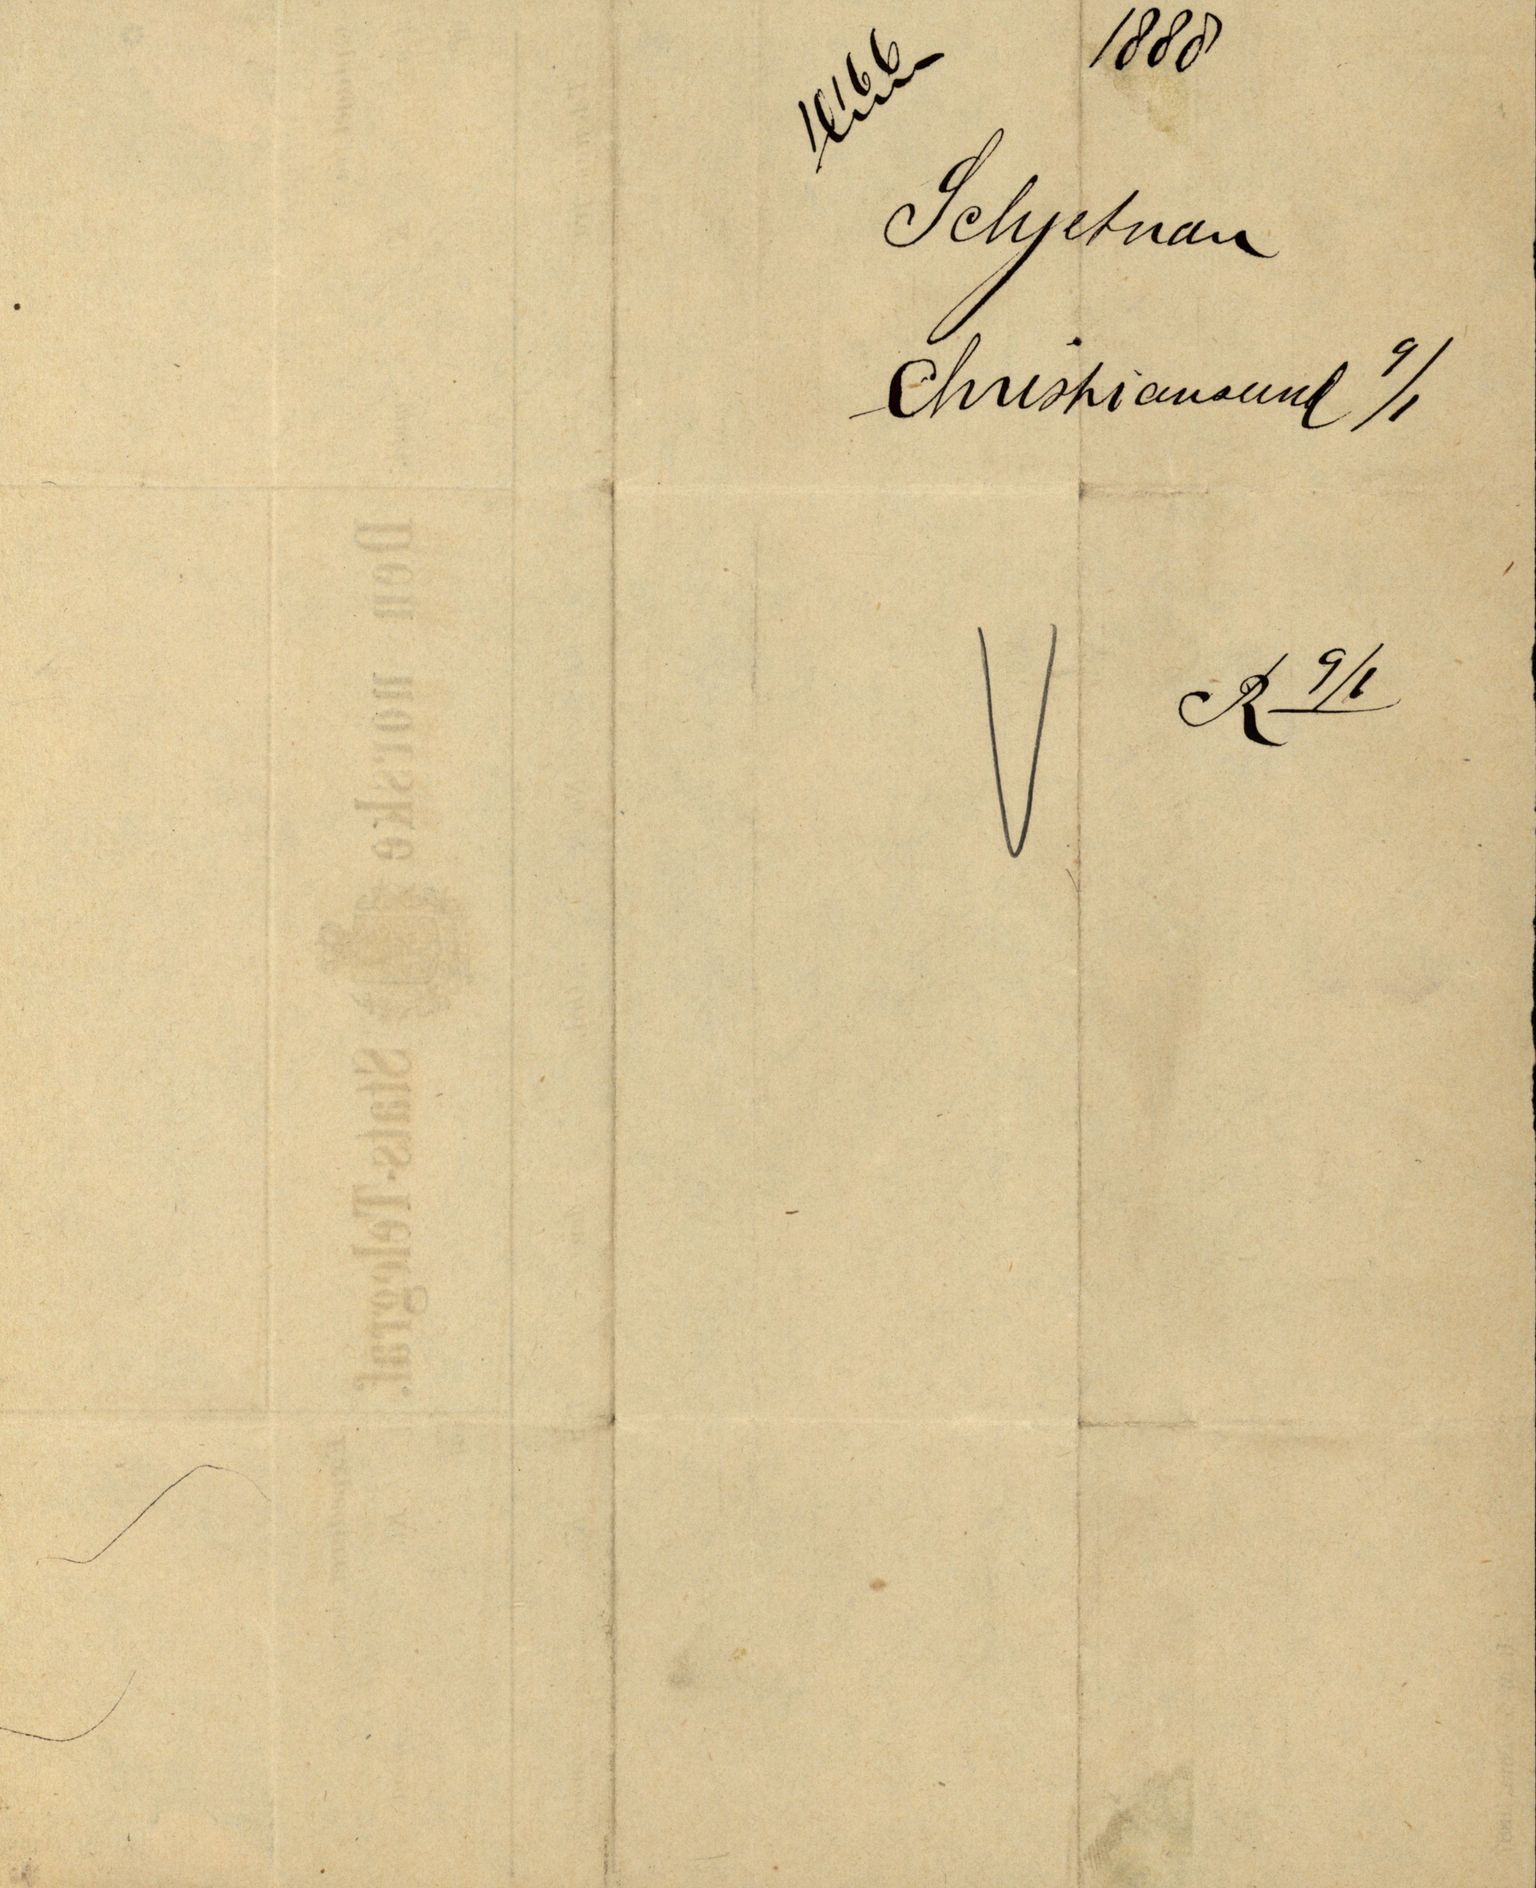 1888
10166
Schjetnan
Christiansund 9/1
R 9/1
Den norske Stats-Telegraf.